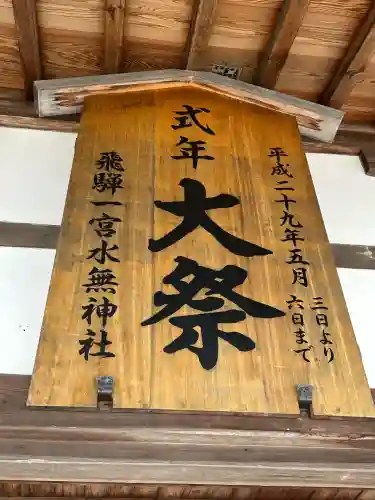 平成二十九年五月 三日より
六日まで
式年
大祭
飛騨一宮水無神社